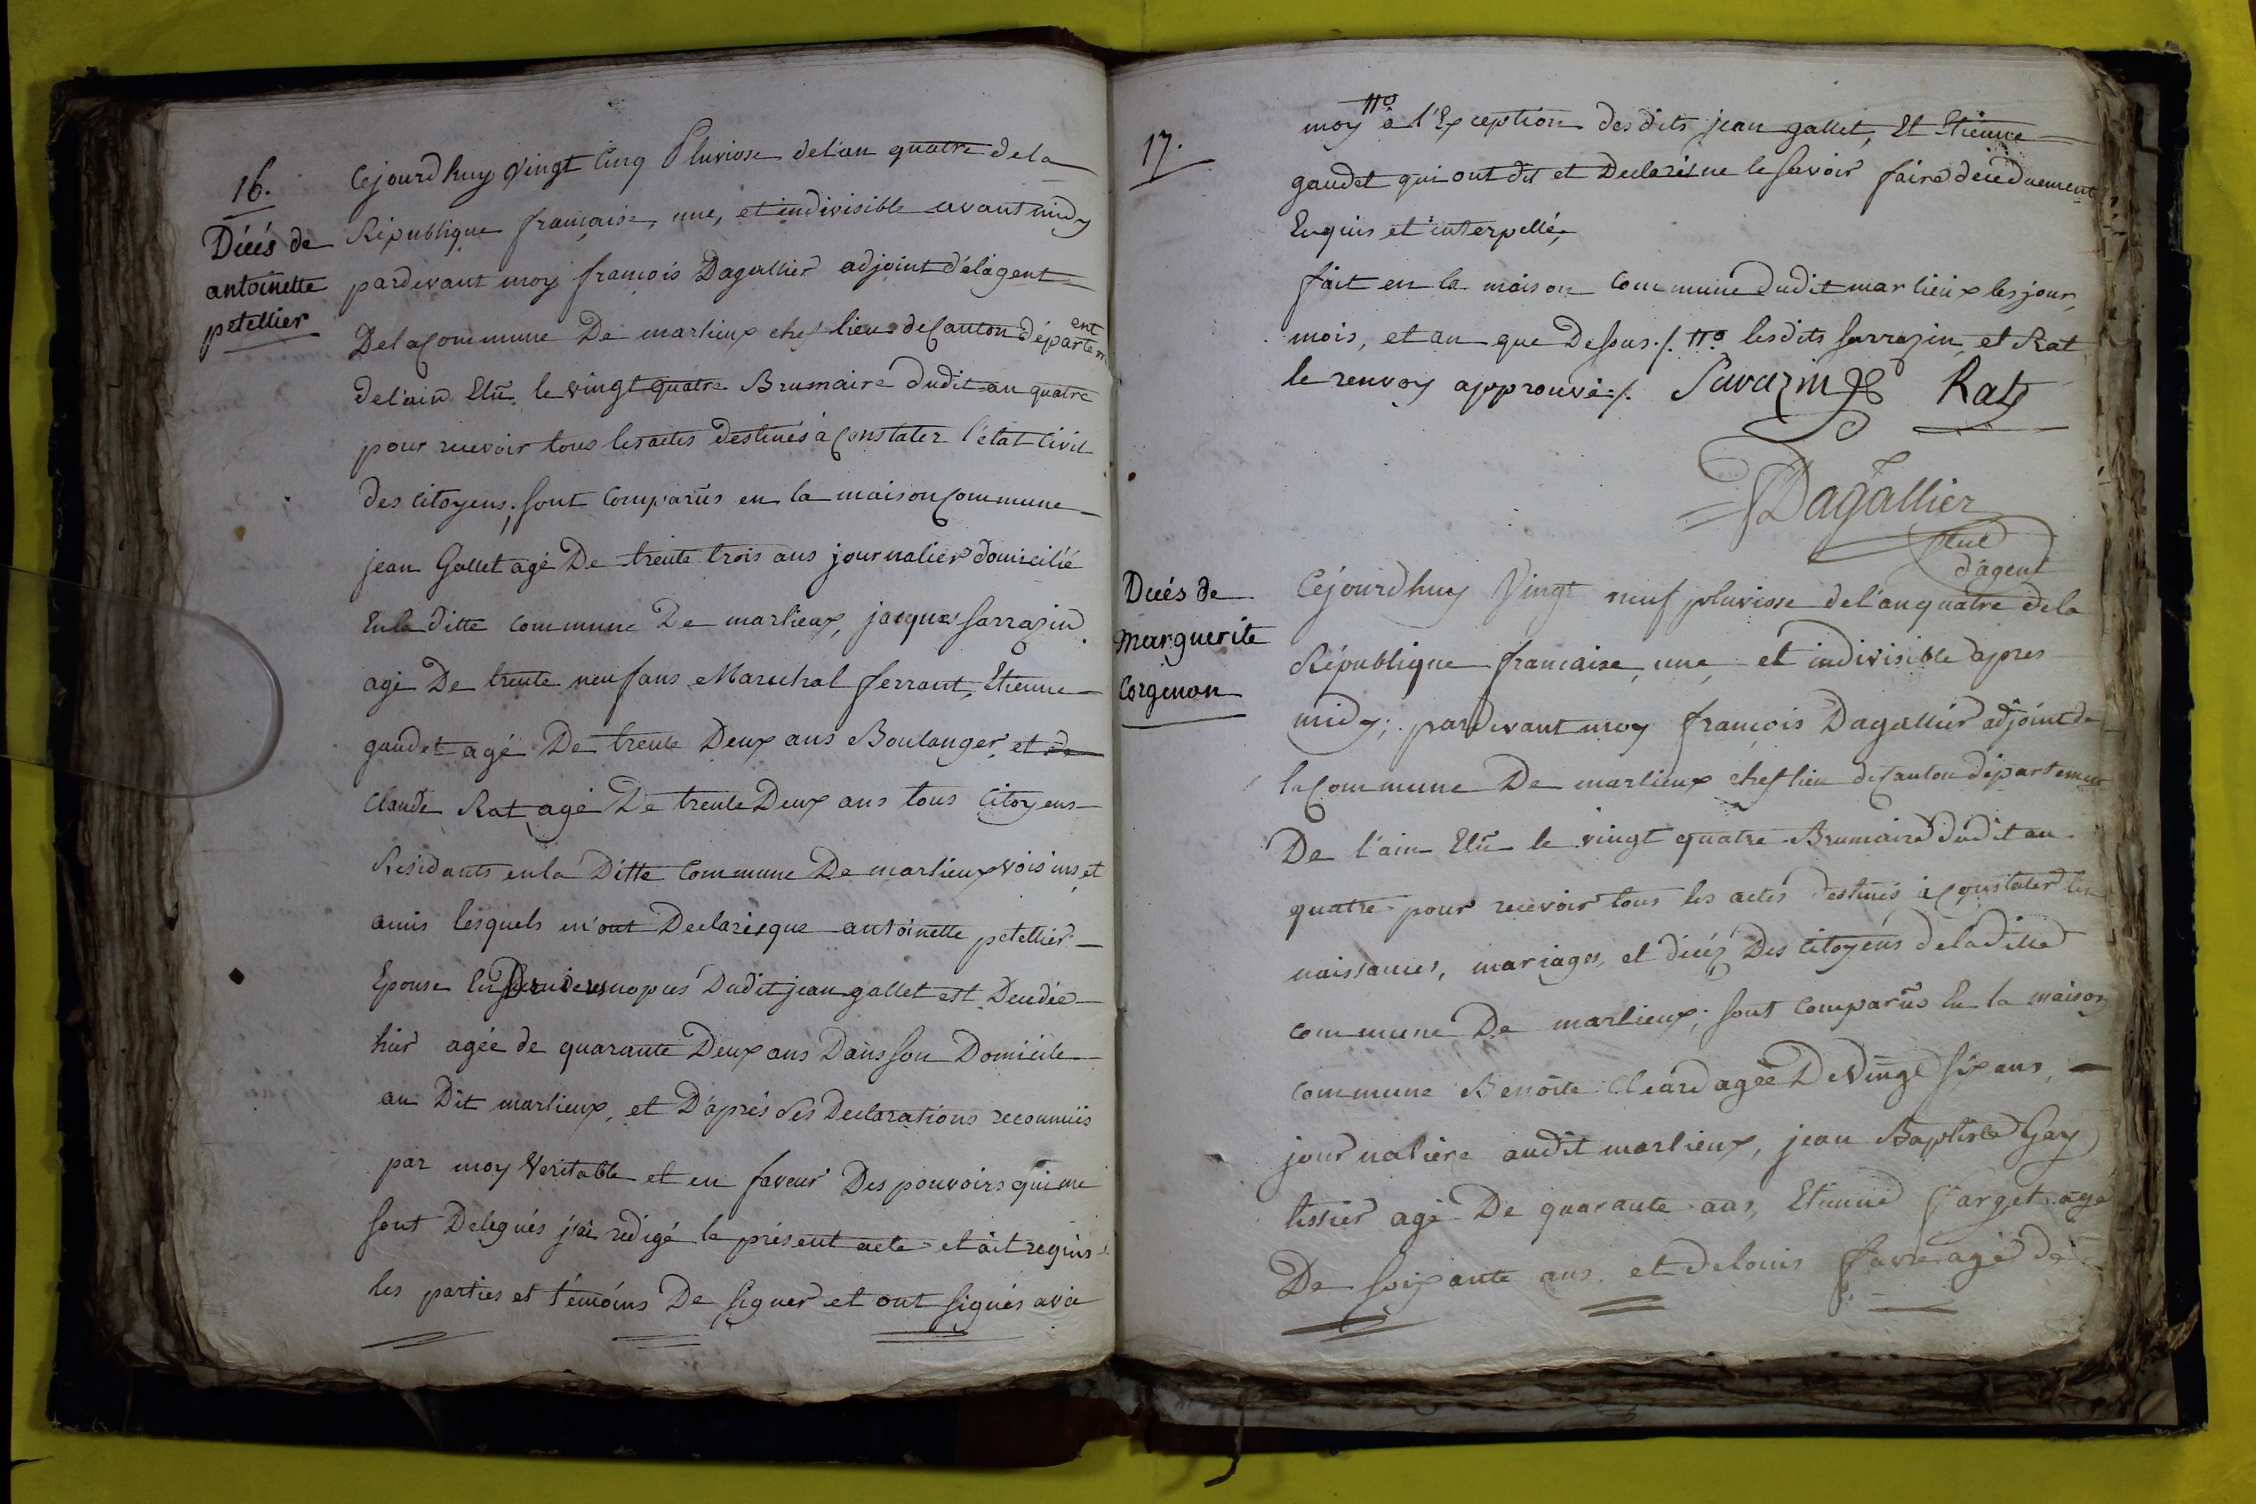 16.
Décés de
antoinette
petellier
Cejourd huy vingt Cinq Pluviose de l'an quatre de la
République française, une, et indivisible avant midy
pardevant moy françois Dagallier adjoint de l'agent
De la Commune De marlieux chef lieu de Canton départem ent
de l'ain Elu le vingt quatre Brumaire dudit an quatre
pour recevoir tous les actes destinés à Constater l'état Civil
des citoyens; sont Comparus en la maison Commune
jean Gallet agé De trente trois ans journalier domicilié
En la ditte commune De marlieux, jacques Sarrazin
agé De trente neuf ans Marechal ferrant, Etienne
gaudet agé De trente Deux ans Boulanger, et de
Claude Rat agé De trente Deux ans tous Citoyens
Résidants en la Ditte Commune De marlieux voisins, et
amis lesquels m'ont Declarés que antoinette petellier
Epouse en nopces dudit jean gallet est Decedée
hier agée de quarante Deux ans Dans son Domicile
au Dit marlieux, et D'aprés ses Declarations reconnüs
par moy Veritable et en faveur Des pouvoirs qui me
sont Delegués j'ai redigé le présent acte et ait requis
les parties et témoins De signer et ont signés avec
17.
moy à l'Exception des dits jean gallet, Et Etienne
gaudet qui ont dit et Declarés ne le savoir faire de ce duement
Enquis et interpellé,
fait en la maison Commune dudit marlieux les jour,
mois, et an que Dessus ./. lesdits sarrazin, et Rat
le renvoy approuvé ./. Savazin Rat
Dagallier
d'agent
Décés de
Marguerite
Corgenon
Cejourd huy Vingt neuf pluviose de l'an quatre de la
République francaise, une, et indivisible apres
midy; pardevant moy françois Dagallier adjoint de
la Commune De marlieux chef lieu de Canton département
De l'ain Elu le vingt quatre Brumaire dudit an
quatre pour recevoir tous les actes destinés à Constater les
naissances, mariages, et décéz Des Citoyens de la ditte
commune De marlieux; sont Comparus En la maison
commune Benoite Cleard agée De Vingt six ans,
journaliere audit marlieux, jean Baptiste Gay
tissier agé De quarante ans, Etienne farget agé
De soixante ans. et de louis favre agé de